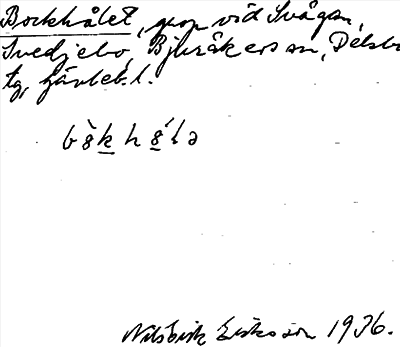 Bockhålet, grop vid Svågan,
Svedjebo, Bjuråkers sn, Delsbo
tg, Gävleb. l.
bò̤khó̤lə
Nilsbick Eriksson 1936.